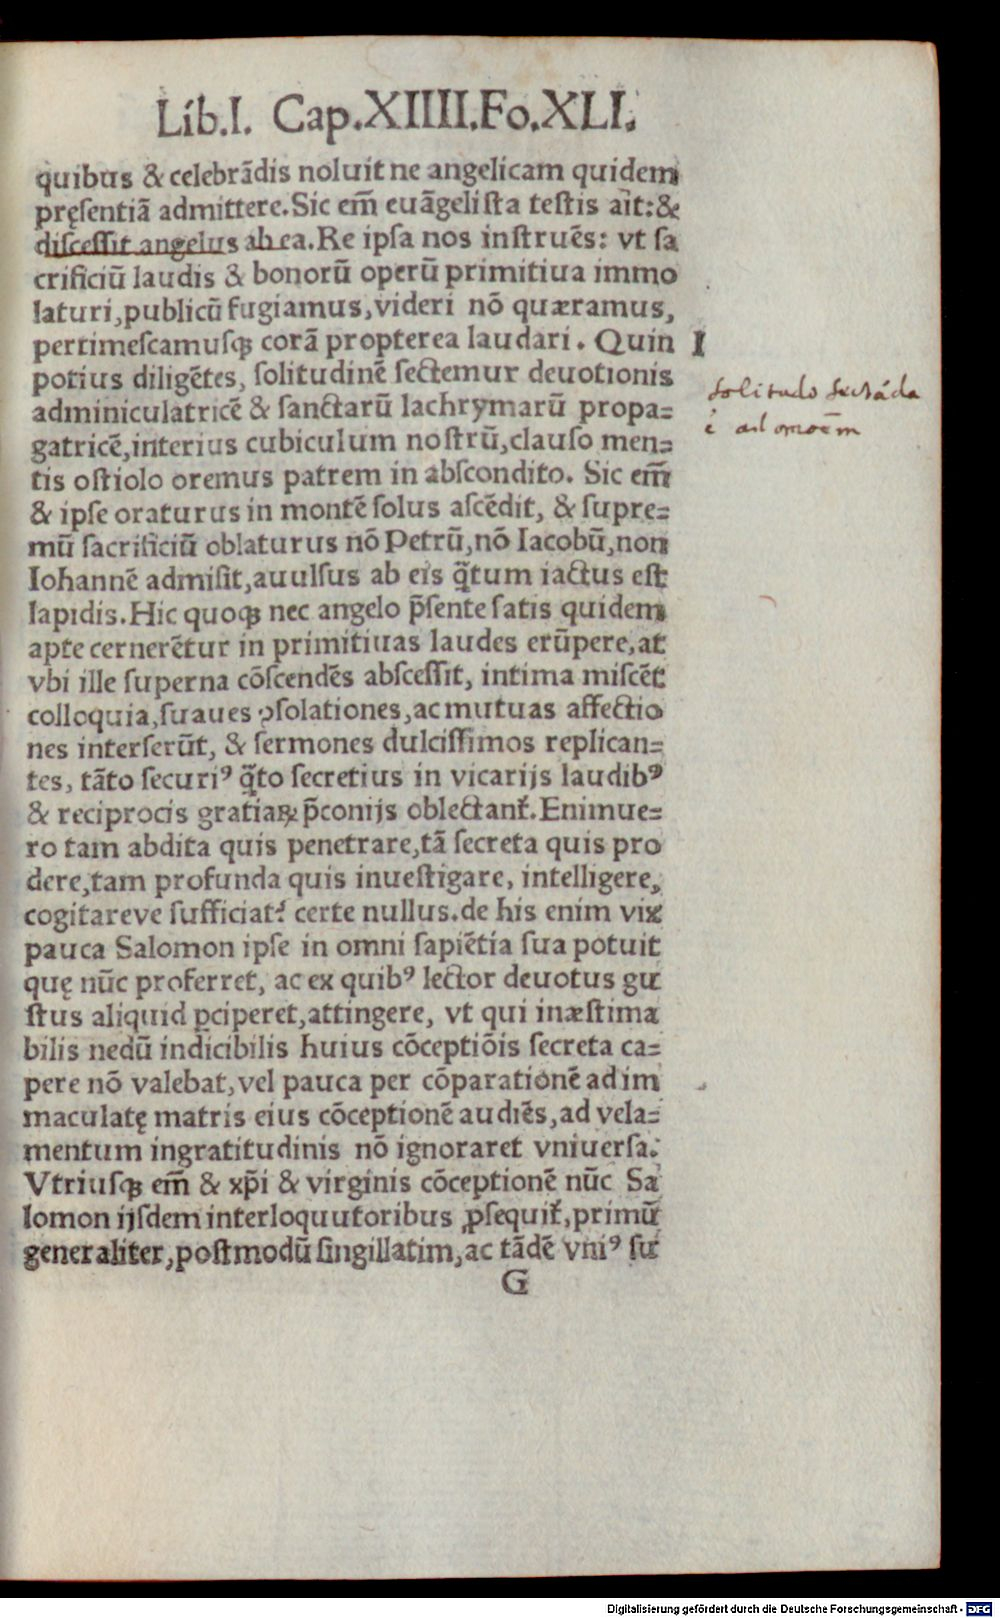 Lib.I. Cap.XIIII.Fo.XLI.
quibus & celebrãdis noluit ne angelicam quidem
pręsentiã admittere.Sic em̃ euãgelista testis ait:&
discessit angelus ab ea.Re ipsa nos instruẽs: vt sa
crificiũ laudis & bonorũ operũ primitiua immo
laturi,publicũ fugiamus,videri nõ quæramus,
pertimescamusq̢ corã propterea laudari. Quin I
potius diligẽtes, solitudinẽ sectemur deuotionis
adminiculatricẽ & sanctarũ lachrymarũ propa=
gatricẽ,interius cubiculum nostrũ,clauso men=
tis ostiolo oremus patrem in abscondito. Sic em̃
& ipse oraturus in montẽ solus ascẽdit, & supre=
mũ sacrificiũ oblaturus nõ Petrũ,nõ Iacobũ,non
Iohannẽ admisit,auulsus ab eis q̃tum iactus est
lapidis.Hic quoq̢ nec angelo p̃sente satis quidem
apte cernerẽtur in primitiuas laudes erũpere,at
vbi ille superna cõscendẽs abscessit, intima miscẽt
colloquia,suaues ꝯsolationes,ac mutuas affectio
nes interserũt, & sermones dulcissimos replican=
tes, tãto securiꝰ q̃to secretius in vicarijs laudibꝰ
& reciprocis gratiaꝝ p̃conijs oblectant᷑.Enimue=
ro tam abdita quis penetrare,tã secreta quis pro
dere,tam profunda quis inuestigare, intelligere,
cogitareve sufficiat? certe nullus.de his enim vix
pauca Salomon ipse in omni sapiẽtia sua potuit
quę nũc proferret, ac ex quibꝰ lector deuotus gu
stus aliquid ꝑciperet,attingere, vt qui inæstima
bilis nedũ indicibilis huius cõceptiõis secreta ca=
pere nõ valebat,vel pauca per cõparationẽ ad im
maculatę matris eius cõceptionẽ audiẽs,ad vela=
mentum ingratitudinis nõ ignoraret vniuersa.
Vtriusq̢ em̃ & xp̃i & virginis cõceptionẽ nũc Sa
lomon ijsdem interloquutoribus ꝓsequit᷑,primũ
generaliter,postmodũ singillatim,ac tãdẽ vniꝰ su
G
solitudo sectãda
ad
Digitalisierung gefördert durch die Deutsche Forschungsgemeinschaft - DFG